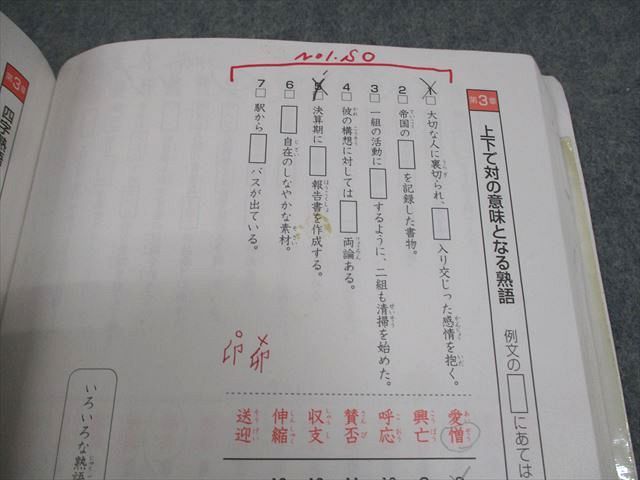 No1.50
第3章
上下で対の意味となる熟語
例文の□にあては
1 大切な人に裏切られ、□入り交じった感情を抱く。
2 帝国の□を記録した書物。
3 一組の活動に□するように、二組も清掃を始めた。
4 彼の構想に対しては□両論ある。
5 決算期に□報告書を作成する。
6 □自在のしなやかな素材。
7 駅から□バスが出ている。
愛憎
興亡
呼応
賛否
収支
伸縮
送迎
卯
印
いろいろな熟語
第3章
四字熟語